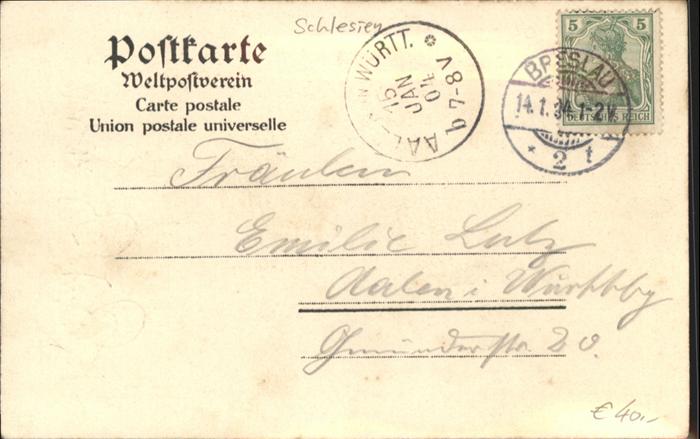 Schlesien
Postkarte
Weltpostverein
Carte postale
Union postale universelle
AALEN WÜRTT.
15
JAN
04
7-8 V
5 5
DEUTSCHES REICH
BRESLAU
14.1.04.1-2V.
* 2 t
Fräulein
Emilie Lutz
Aalen i Württbg
Gmünderstr. 20.
€ 40,-